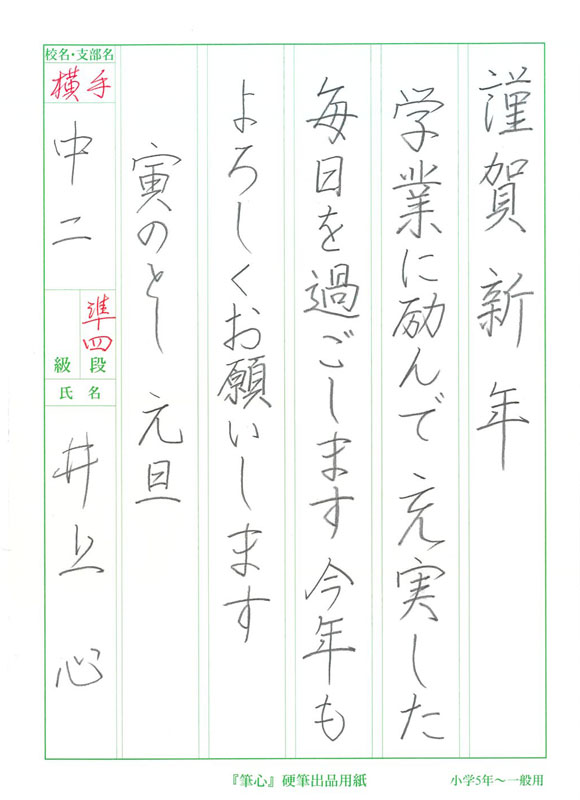 謹賀新年
学業に励んで充実した
毎日を過ごします今年も
よろしくお願いします
寅のとし 元旦
校名・支部名
横手
中二
準四
級 段
氏 名
井上 心
『筆心』硬筆出品用紙
小学5年〜一般用